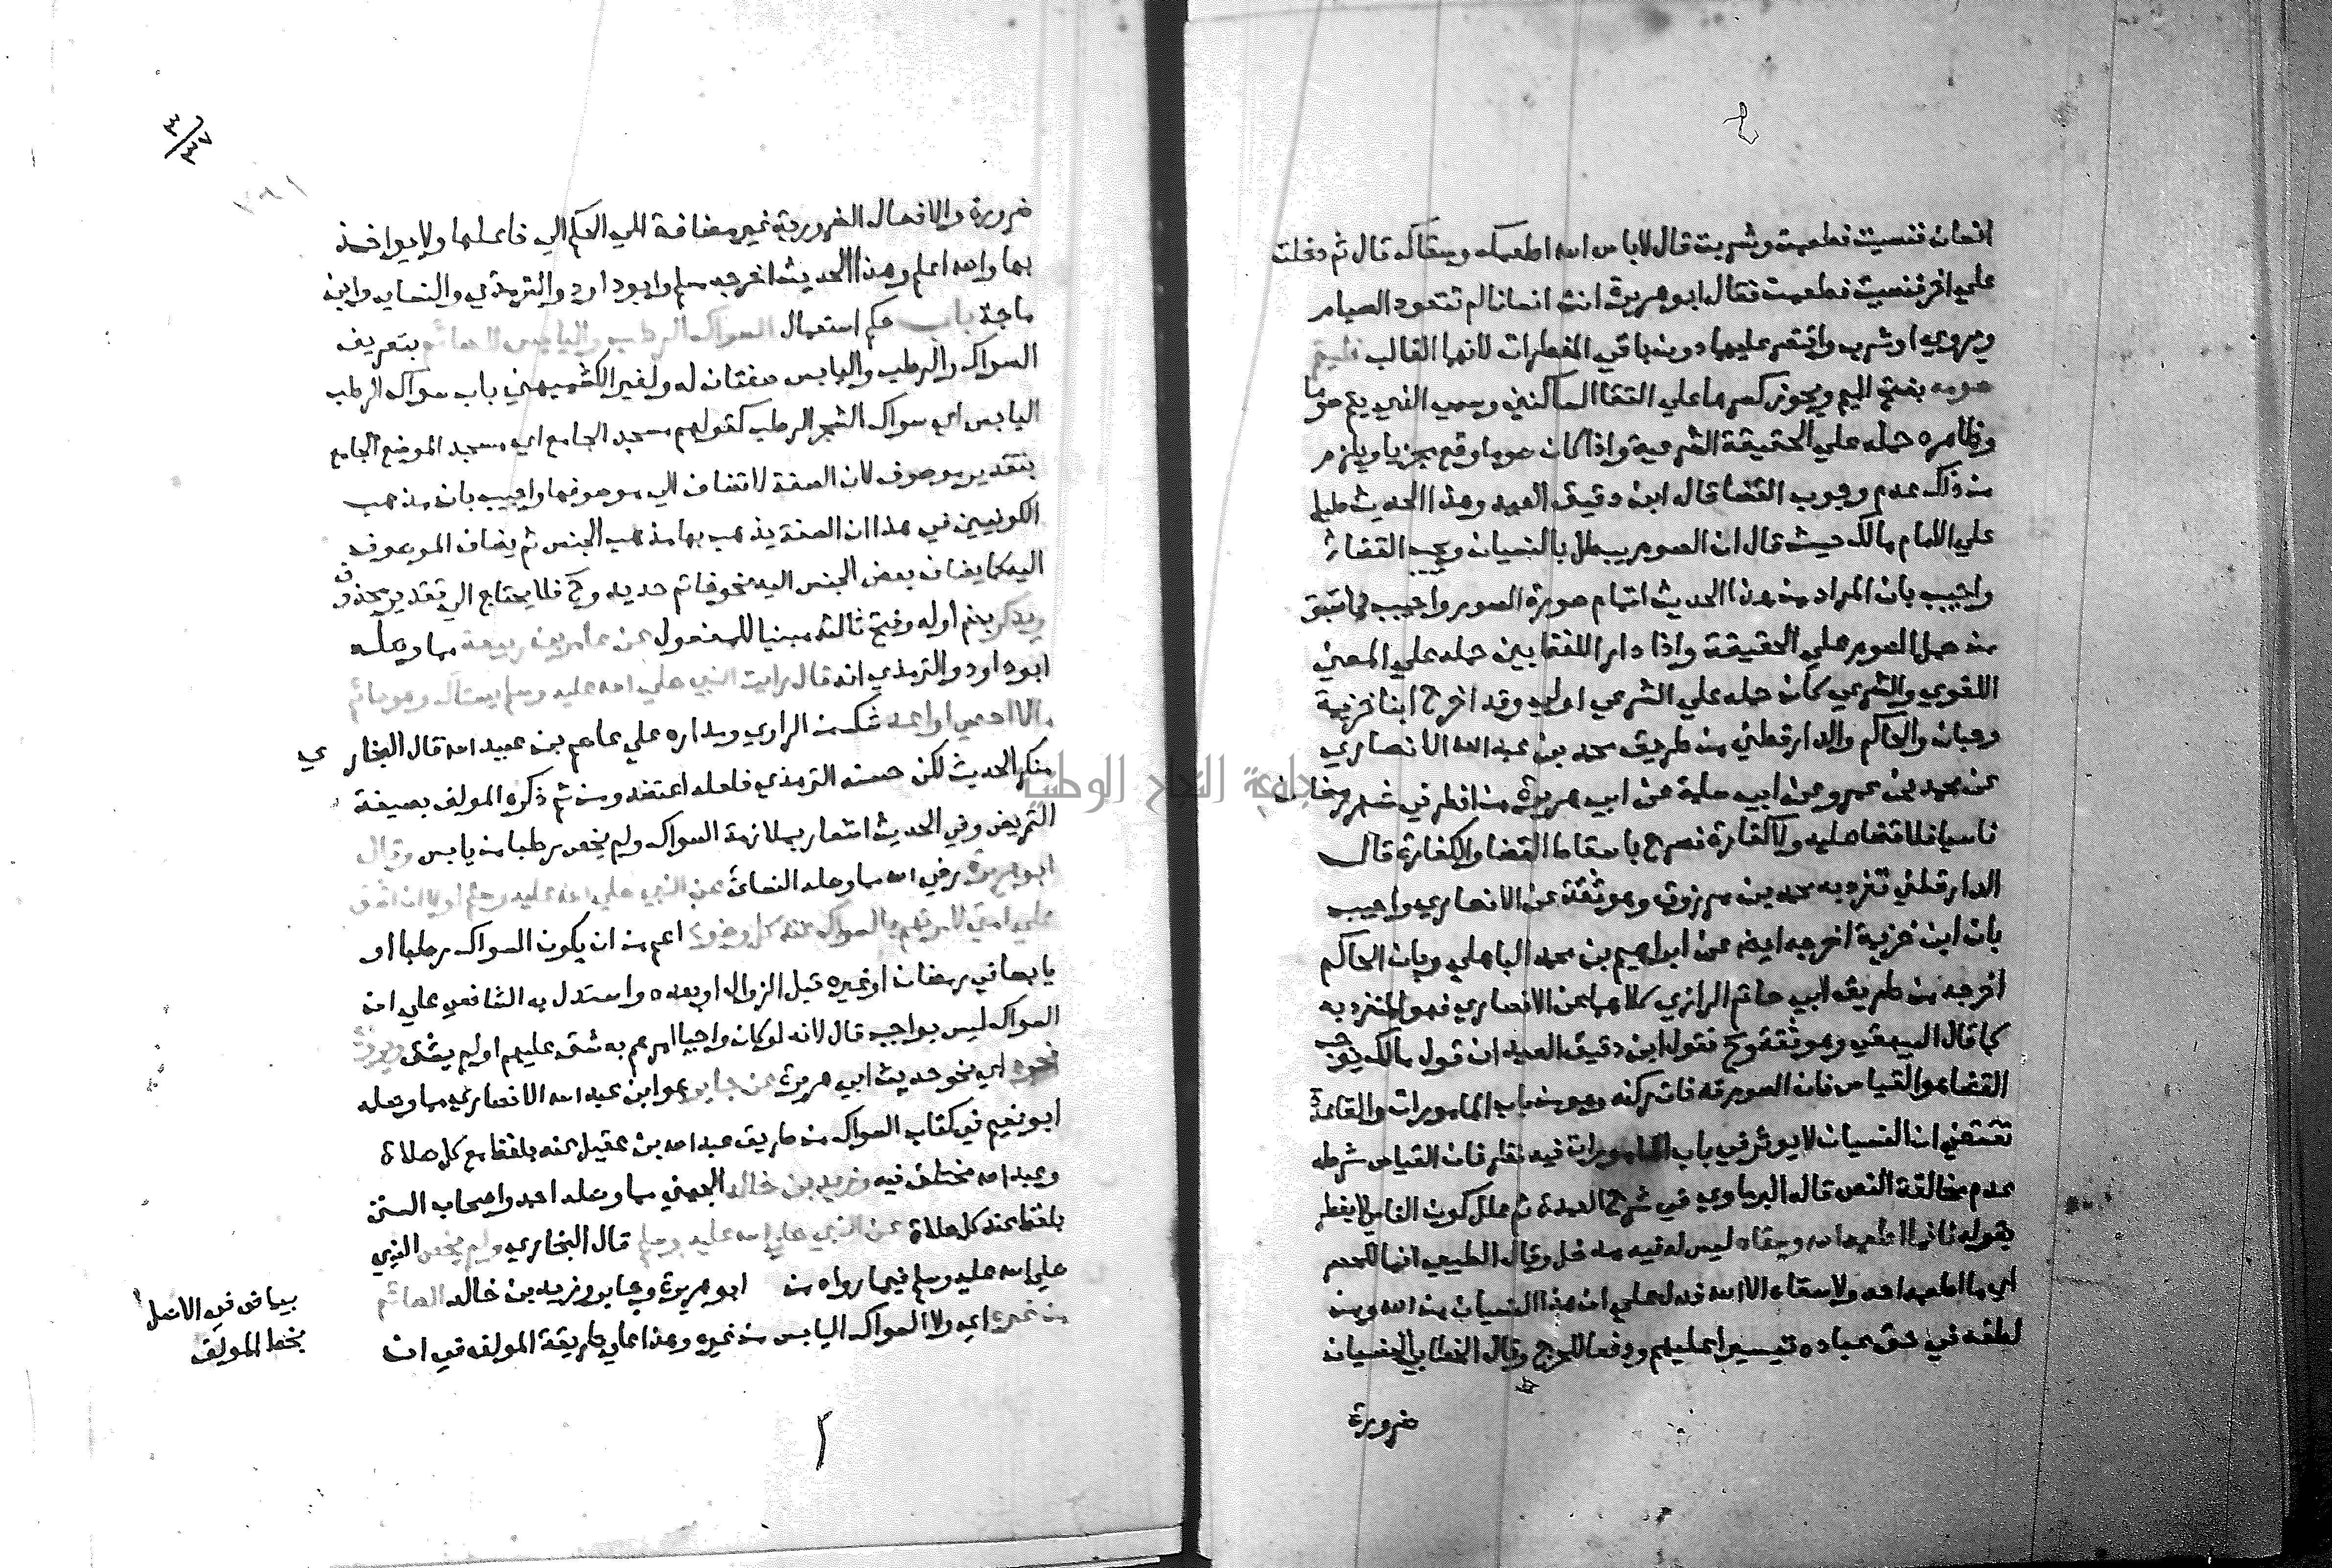 انسان فنسيت فطعمت وشربت قال لا باس الله اطعمك وسقاك قال ثم دخلت
علي اخر فنسيت فطعمت فقال ابو هريرة انت انسان لم تتعود الصيام
ويروي او شرب واقتصر عليهما دون باقي المفطرات لانهما الغالب فليتم
صومه بفتح الميم ويجوز كسرها علي التقا الساكنين وسمي الذي يتم صوما
وظاهره حمله علي الحقيقة الشرعية واذا كان صوما وقع مجزيا ويلزم
من ذلك عدم وجوب القضا قاله ابن دقيق العيد وهذا الحديث دليل
علي الامام مالك حيث قال ان الصوم يبطل بالنسيان ويجب القضا
واجيب بان المراد من هذا الحديث اتمام صورة الصوم واجيب بما سبق
من حمل الصوم علي الحقيقة واذا دار اللفظ بين حمله علي المعني
اللغوي والشرعي كان حمله علي الشرعي اولي وقد اخرج ابنا خزيمة
وحبان والحاكم والدارقطني من طريق محمد بن عبد الله الانصاري
عن محمد بن عمرو عن ابي سلمة عن ابي هريرة من افطر في شهر رمضان
ناسيا فلا قضا عليه ولا كفارة فصرح باسقاط القضا والكفارة قال
الدارقطني تفرد به محمد بن مرزوق وهو ثقة عن الانصاري واجيب
بان ابن خزيمة اخرجه ايضا عن ابراهيم بن محمد الباهلي وبان الحاكم
اخرجه من طريق ابي حاتم الرازي كلاهما عن الانصاري فهو المنفرد به
كما قال البيهقي وهو ثقة وح فقول ابن دقيق العيد ان قول مالك يوجب
القضا هو القياس فان الصوم قد فات ركنه وهو من باب المامورات والقاعدة
تقتضي ان النسيان لا يوثر في باب المامورات فيه نظر فان القياس شرطه
عدم مخالفة النص قاله البرماوي في شرح العمدة ثم علل كون الناسي لا يفطر
بقوله فانما اطعمه الله وسقاه ليس له فيه مدخل وقال الطيبي انما للحصر
اي ما اطعمه احد ولا سقاه الا الله فدل علي ان هذا النسيان من الله ومن
لطفه في حق عباده تيسيرا عليهم ودفعا للحرج وقال الخطابي النسيان
ضرورة
ضرورة والافعال الضرورية غير مضافة في الحكم الي فاعلها ولا يواخذ
بها والله اعلم وهذا الحديث اخرجه مسلم وابو داود والترمذي والنساي وابن
ماجة باب حكم استعمال السواك الرطب واليابس للصائم بتعريف
السواك والرطب واليابس صفتان له ولغير الكشميهني باب سواك الرطب
اليابس اي سواك الشجر الرطب كقولهم مسجد الجامع اي مسجد الموضع الجامع
بتقدير موصوف لان الصفة لا تضاف الي موصوفها واجيب بان مذهب
الكوفيين في هذا ان الصفة يذهب بها مذهب الجنس ثم يضاف الموصوف
اليه كما يضاف بعض الجنس اليه نحو خاتم حديد وح فلا يحتاج الي تقدير محذوف
ويذكر بضم اوله وفتح ثالثه مبنيا للمفعول عن عامر بن ربيعة مما وصله
ابو داود والترمذي انه قال رايت النبي صلي الله عليه وسلم يستاك وهو صائم
مالا احصي او اعد شك من الراوي ومداره علي عاصم بن عبيد الله قال البخاري
منكر الحديث لكن حسنه الترمذي فلعله اعتضد ومن ثم ذكره المولف بصيغة
التمريض وفي الحديث اشعار بملازمة السواك ولم يخص رطبا من يابس وقال
ابو هريرة رضي الله مما وصله النسائ عن النبي صلي الله عليه وسلم لولا ان اشق
علي امتي لامرتهم بالسواك عند كل وضوء اعم من ان يكون السواك رطبا او
يابسا في رمضان او غيره قبل الزوال او بعده واستدل به الشافعي علي ان
السواك ليس بواجب قال لانه لو كان واجبا امرهم به شق عليهم او لم يشق ويروي
نحوه اي نحو حديث ابي هريرة عن جابر هو ابن عبد الله الانصاري مما وصله
ابو نعيم في كتاب السواك من طريق عبد الله بن عقيل عنه بلفظ مع كل صلاة
وعبد الله مختلف فيه وزيد بن خالد الجهني مما وصله احمد واصحاب السنن
بلفظ عند كل صلاة عن النبي صلي الله عليه وسلم قال البخاري ولم يخص النبي
صلي الله عليه وسلم فيما رواه من ابو هريرة وجابر وزيد بن خالد الصائم
من غيره اي ولا السواك اليابس من غيره وهذا علي طريقة المولف في ان
بياض في الاصل
بخط المولف
جامعة النجاح الوطنية